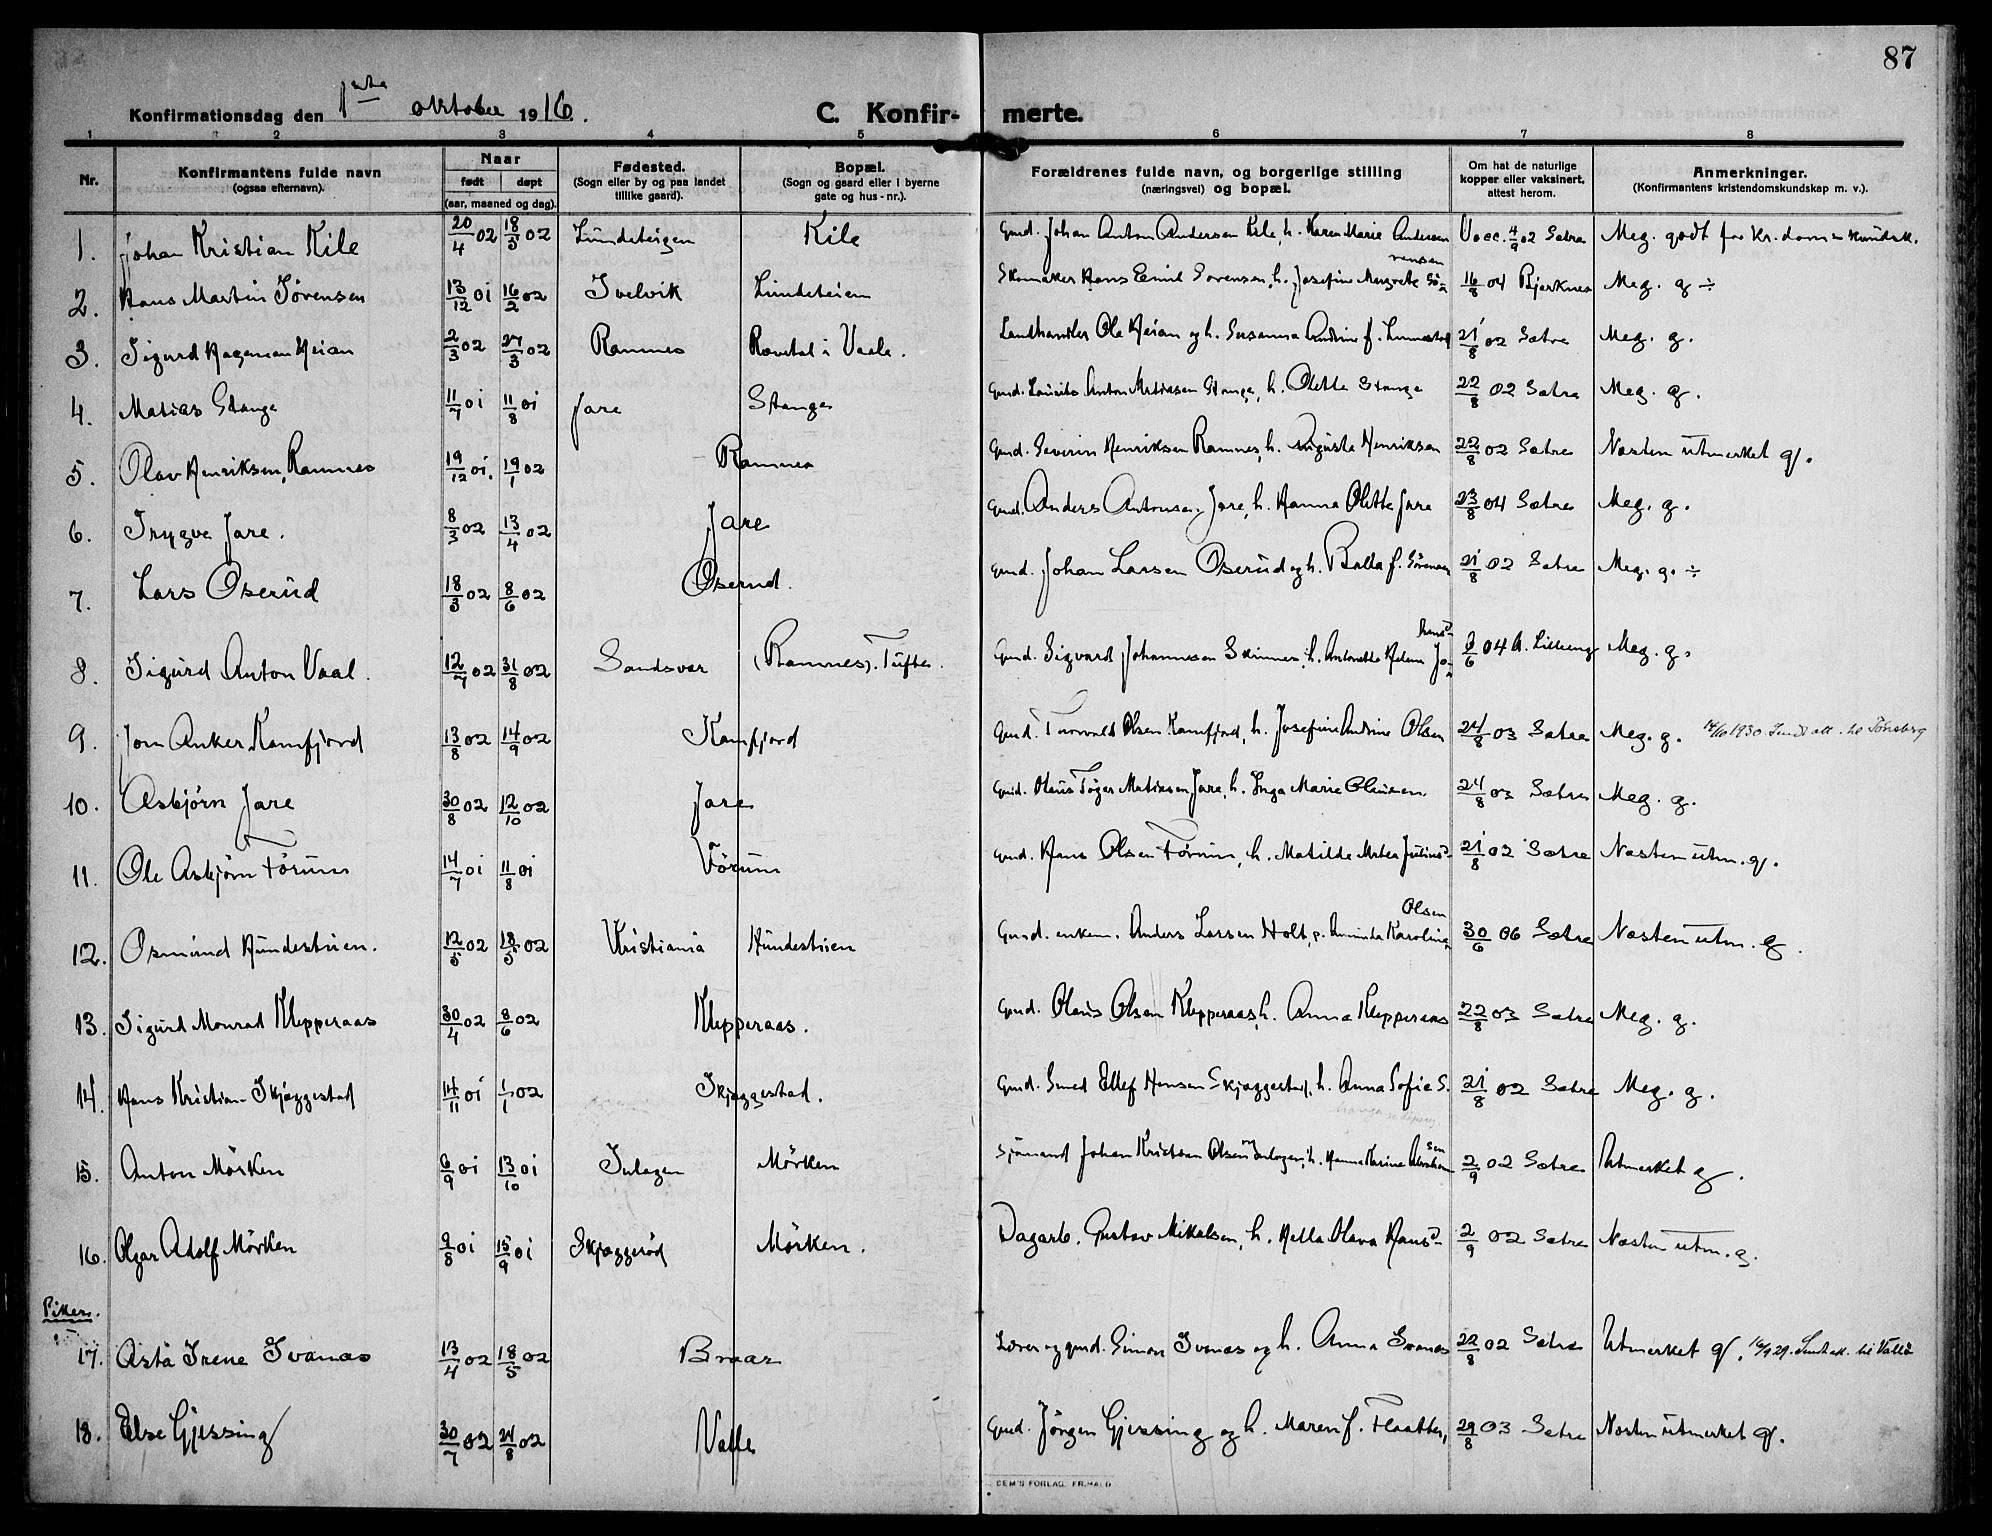 87
Konfirmationsdag den 1ste oktober 1916. C. Konfir- merte.
1 2 3 4 5 6 7 8
Nr. Konfirmantens fulde navn (ogsaa efternavn). Naar født døpt (aar, maaned og dag). Fødested. (Sogn eller by og paa landet tillike gaard). Bopæl. (Sogn og gaard eller i byerne gate og hus-nr.). Forældrenes fulde navn, og borgerlige stilling (næringsvei) og bopæl. Om hat de naturlige kopper eller vaksinert, attest herom. Anmerkninger. (Konfirmantens kristendomskundskap m. v.).
1. Johan Kristian Kile 20/4 02 18/5 02 Lindeteigen Kile Gmd. Johan Anton Andersen Kile, h. Karen Marie Andersen Vacc. 4/9 02 Sætre Meg. godt for kr.doms kundsk.
2. Hans Martin Sörensen 13/12 01 16/2 02 Svelvik Lindeteien Skomaker Hans Emil Sorensen, h. Josefine Margrete Sö-rensen 16/8 04 Bjerknes Meg. g ÷
3. Sigurd Hageman Heian 2/3 02 27/3 02 Ramnes Revetal i Vaale. Landhandler Ole Heian og h. Susanna Andrine f. Linnestad 21/8 02 Sætre Meg. g.
4. Matias Stange 11/7 01 11/8 01 Jare Stange Gmd. Laurits Anton Matiesen Stange, h. Olette Stange 22/8 02 Sætre Meg. g.
5. Olav Henriksen, Ramnes 19/12 01. 19/1 02 Ramnes Gmd. Severin Henriksen Ramnes, h. Auguste Henriksen 22/8 02 Sætre Næsten utmerket g.
6. Trygve Jare. 8/3 02 13/4 02 Jare Gmd. Anders Antonsen Jare, h. Hanna Olette Jare 23/8 04 Sætre Meg. g.
7. Lars Oserud 18/3 02 8/6 02 Oserud. Gmd. Johan Larsen Oserud og h. Bolla f. Sörensen 21/8 02 Sætre Meg. g. ÷
8. Sigurd Anton Vaal. 12/7 02 31/8 02 Sandsvær (Ramnes). Tufte. Gmd. Sigvard Johannesen Skinnes, h. Antonette Helene Jo-hansd. 04 A. Lilleeng Meg. g.
9. Jon Anker Kamfjord 13/8 02 14/9 02 Kamfjord Gmd. Torvald Olsen Kamfjord, h. Josefine Andrine Olsen 24/8 03 Sætre Meg. g. 14/10 1930. Sendt att. til Tönsberg
10. Asbjörn Jare 30/8 02 12/10 02 Jare Gmd. Olaus Töger Matiesen Jare, h. Inga Marie Olausen. 24/8 03 Sætre Meg. g.
11. Ole Asbjörn Förum 14/7 01 11/8 01 Förum Gmd. Hans Olsen Förum, h. Matilde Matea Juliusd. 21/8 02 Sætre Næsten utm. g.
12. Osmund Hundestuen. 12/5 02 18/5 02 Kristiania Hundestuen Gmd. enkem. Anders Larsen Holt, p. Aminda Karoline Olsen 30/6 06 Sætre Næsten utm. g.
13. Sigurd Monrad Klepperaas 30/4 02 8/6 02 Klepperaas. Gmd. Olaus Olsen Klepperaas, h. Anna Klepperaas 22/8 03 Sætre Meg. g.
14. Hans Kristian Skjæggestad 14/11 01 1/1 02 Skjæggestad. Gmd. Smed Ellef Hansen Skjæggestad, h. Anna Sofie S. 21/8 02 Sætre Meg. g.
15. Anton Mörken 6/9 01 13/10 01 Inlagen Mörken Sjömand Johan Kristian Olsen Inlagen, h. Hanna Karine Abraham-sen 2/9 02 Sætre Utmerket g.
16. Olgar Adolf Mörken 9/8 01 15/9 01 Skjæggerød Mörken. Dagarb. Gustav Mikalsen, h. Hella Olava Hansd. 2/9 02 Sætre Næsten utm. g.
Piker.
17. Asta Irene Svanæs 13/4 02 18/5 02 Braar Lærer og gmd. Simon Svanæs og h. Anna Svanæs 22/8 02 Sætre Utmerket g. Sendt att. til Vallö
18. Else Gjessing 30/7 02 24/8 02 Valle Gmd. Jörgen Gjessing og h. Maren f. Flaatten, 29/8 03 Sætre Næsten utmerket g.
SEM'S FORLAG, FR.HALD